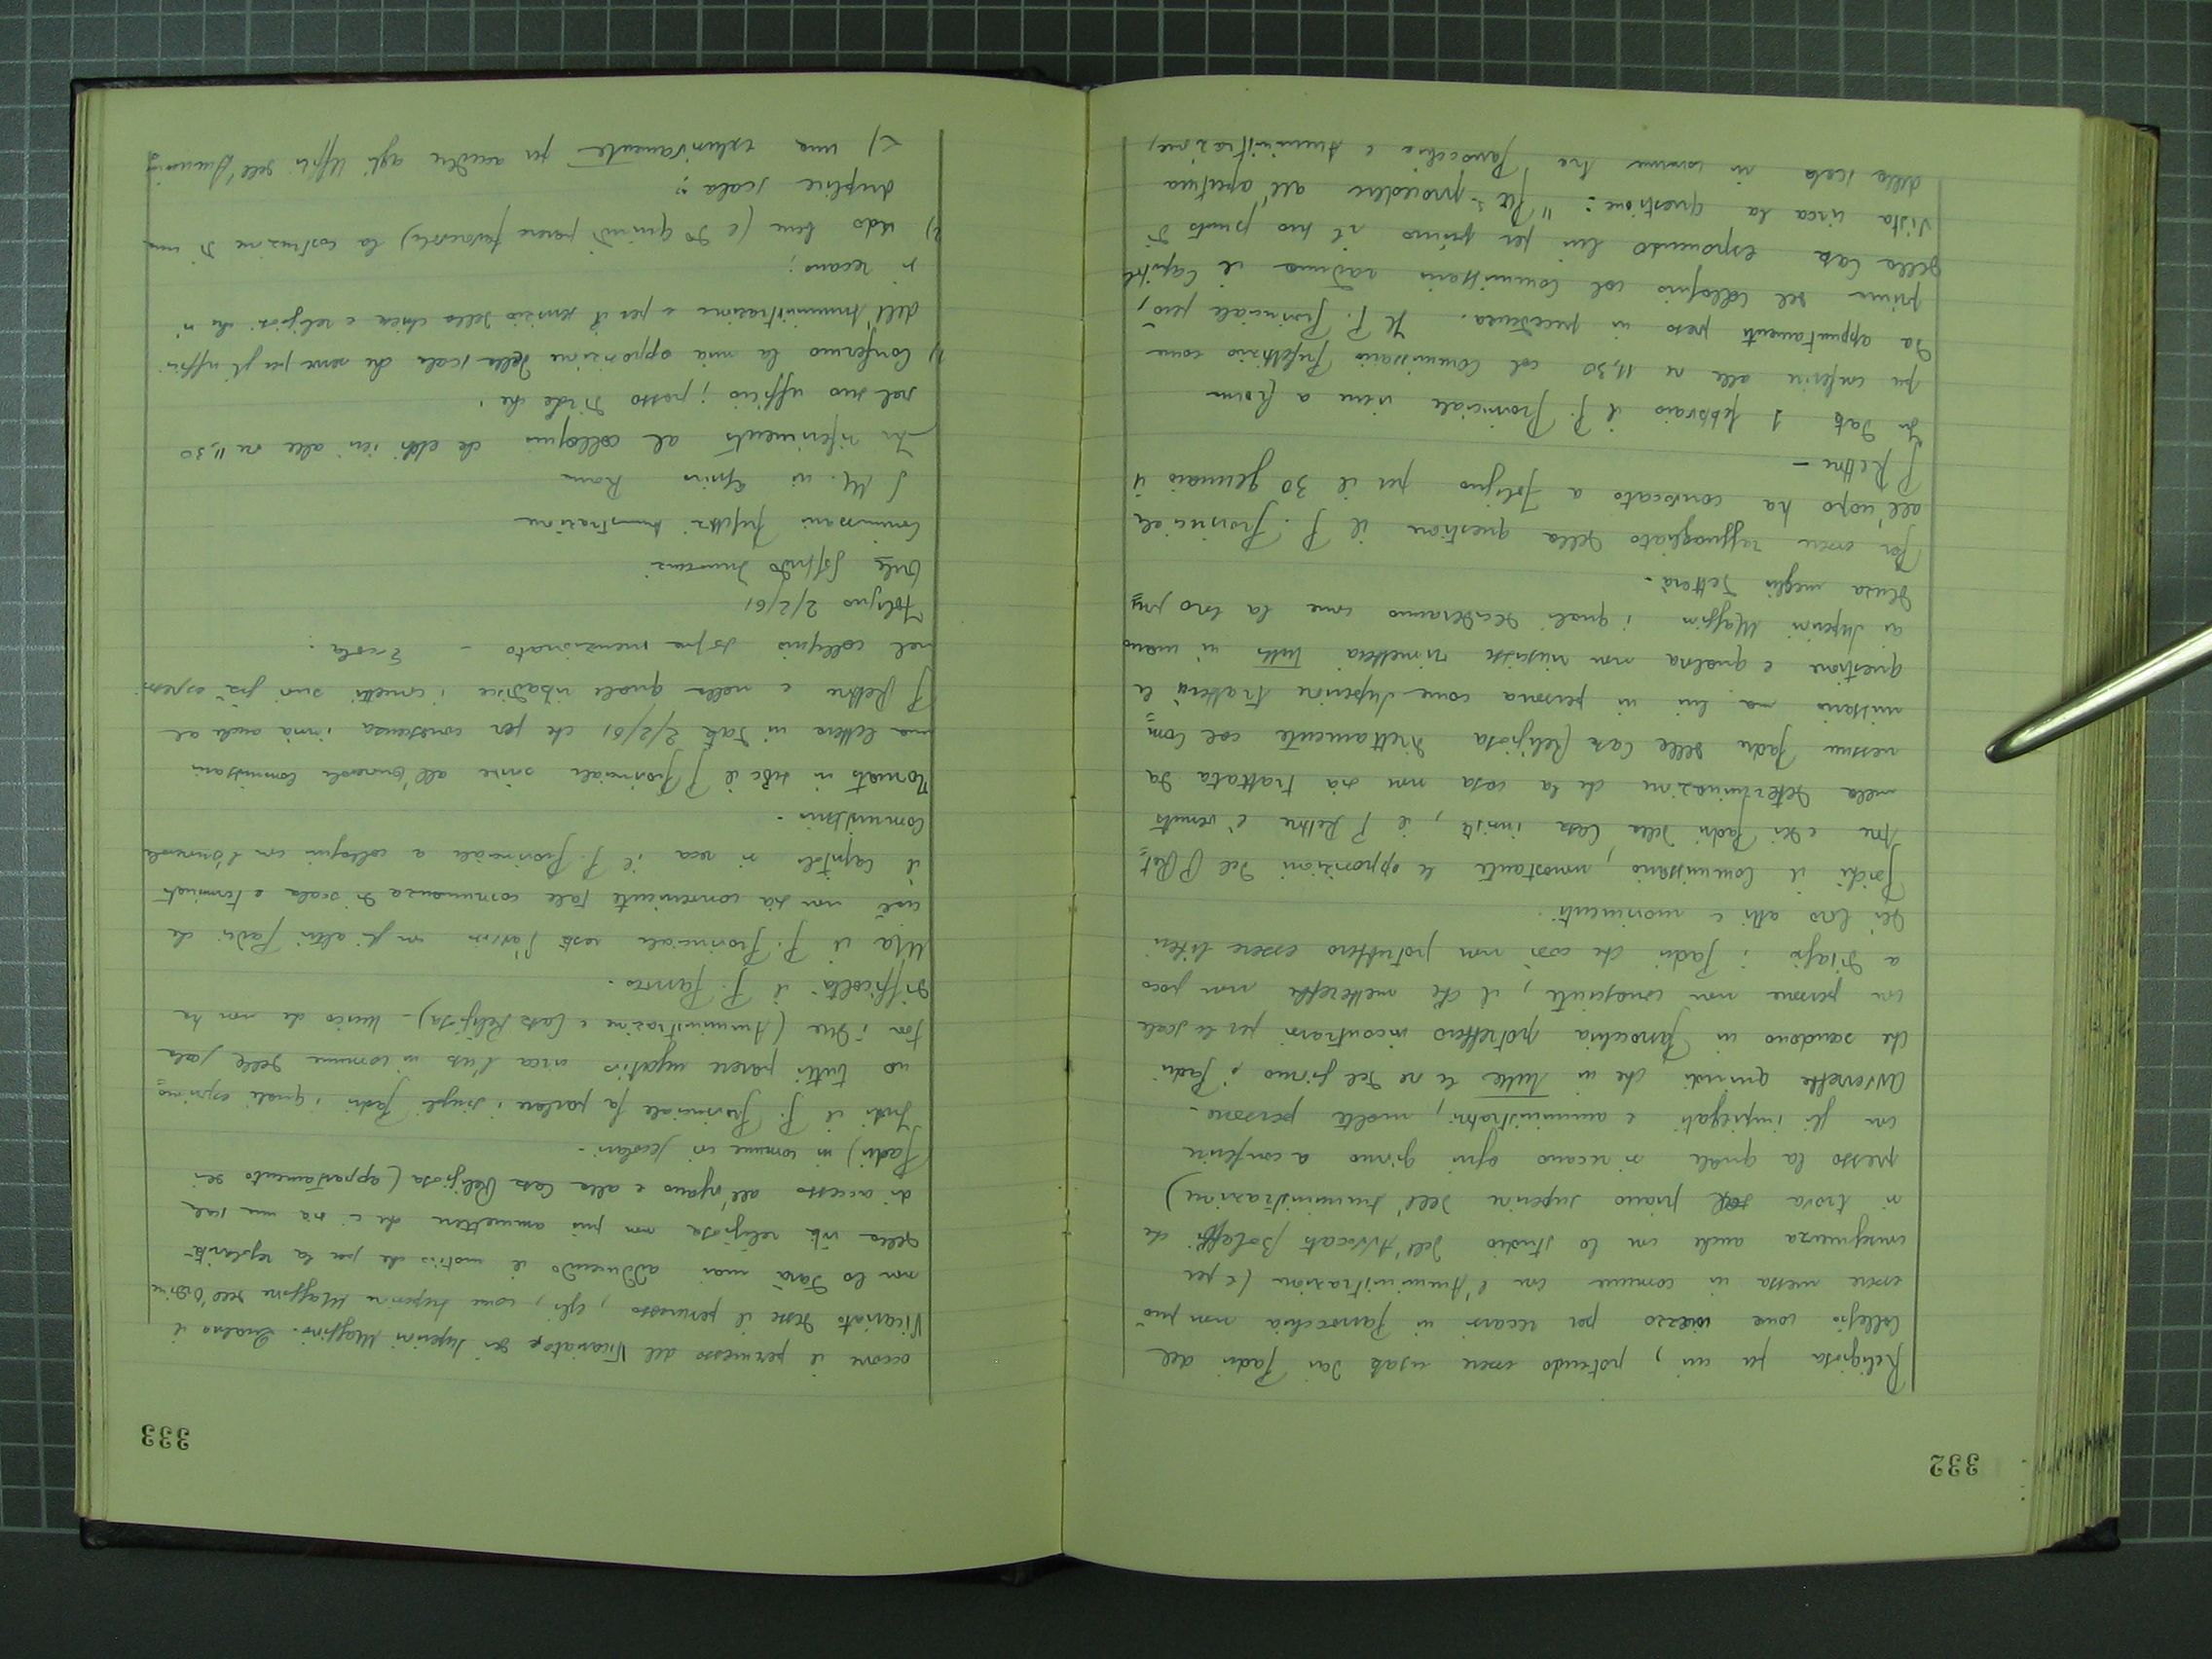 332
Religiosa fu in, potendo essere usata dai Padri del
Collegio come mezzo per recarsi in Parrocchia non può
essere messa in comune con l'Amministrazione (e per
conseguenza anche con lo studio dell'Avvocato che
si trova al piano superiore dell'Amministrazione)
presso la quale si recano ogni giorno a conferire
con gli impiegati e amministratori, molte persone.
Avverrebbe quindi che in tutte le ore del giorno i Padri
che scendono in Parrocchia potrebbero incontrarsi per le scale
con persone non conosciute, il che metterebbe non poco
a disagio i Padri che così non potrebbero essere liberi
dei loro atti e movimenti.
Poiché il Commissario, nonostante le opposizioni del P. Ret=
tore e dei Padri della Casa insiste, il P. Rettore è venuto
nella determinazione che la cosa non sia trattata da
nessun Padre della Casa Religiosa direttamente col Com=
missario ma lui in persona come Superiore tratterà la
questione e qualora non riuscisse rimetterà tutto in mano
ai Superiori Maggiori i quali decideranno come la loro pru=
denza meglio detterà.
Per essere ragguagliato della questione il P. Provinciale
all'uopo ha convocato a Foligno per il 30 gennaio il
P. Rettore -
In data 1 febbraio il P. Provinciale viene a Roma
per conferire alle ore 11,30 col Commissario Prefettizio come
da appuntamento preso in precedenza. Il P. Provinciale però,
prima del colloquio col Commissario raduna il Capitolo
della Casa esponendo lui per primo il suo punto di
vista circa la questione: "Per procedere all'apertura
della scala in comune tra Parrocchia e Amministrazione,
333
occorre il permesso del Vicariato e dei Superiori Maggiori. Qualora il
Vicariato desse il permesso, egli, come Superiore Maggiore dell'Ordine
non lo darà mai adducendo il motivo che per la regolarità
della vita religiosa non può ammettere che ci sia una scala
di accesso all'organo e alla Casa Religiosa (appartamento dei
Padri) in comune coi secolari.
Indi il P. Provinciale fa parlare i singoli Padri i quali esprimo=
no tutti parere negativo circa l'uso in comune della scala
fra i due (Amministrazione e Casa Religiosa) - Unico che non ha
difficoltà il P. Parroco.
Ma il P. Provinciale resta fermo con gli altri Padri che
cioè non sia conveniente tale comunanza di scala e terminato
il Capitolo si reca il P. Provinciale a colloquio con l'Onorevole
Commissario.
Tornato in sede il P. Provinciale scrive all'Onorevole Commissario
una lettera in data 2/2/61 che per conoscenza invia anche al
P. Rettore e nella quale ribadisce i concetti suoi già espressi
nel colloquio sopra menzionato - Eccola:
Foligno 2/2/61
Commissario Prefettizio Amministrazione
S. M. in Aquiro Roma
In riferimento al colloquio che ebbi ieri alle ore 11,30
nel suo ufficio, posso dirle che:
1) Confermo la mia opposizione della scala che serve per gli uffici
dell'Amministrazione e per il servizio della chiesa e religiosi che vi
si recano;
2) Vedo bene (e do quindi parere favorevole) la costruzione di una
duplice scala:
a) una esclusivamente per accedere agli Uffici dell'Amminis